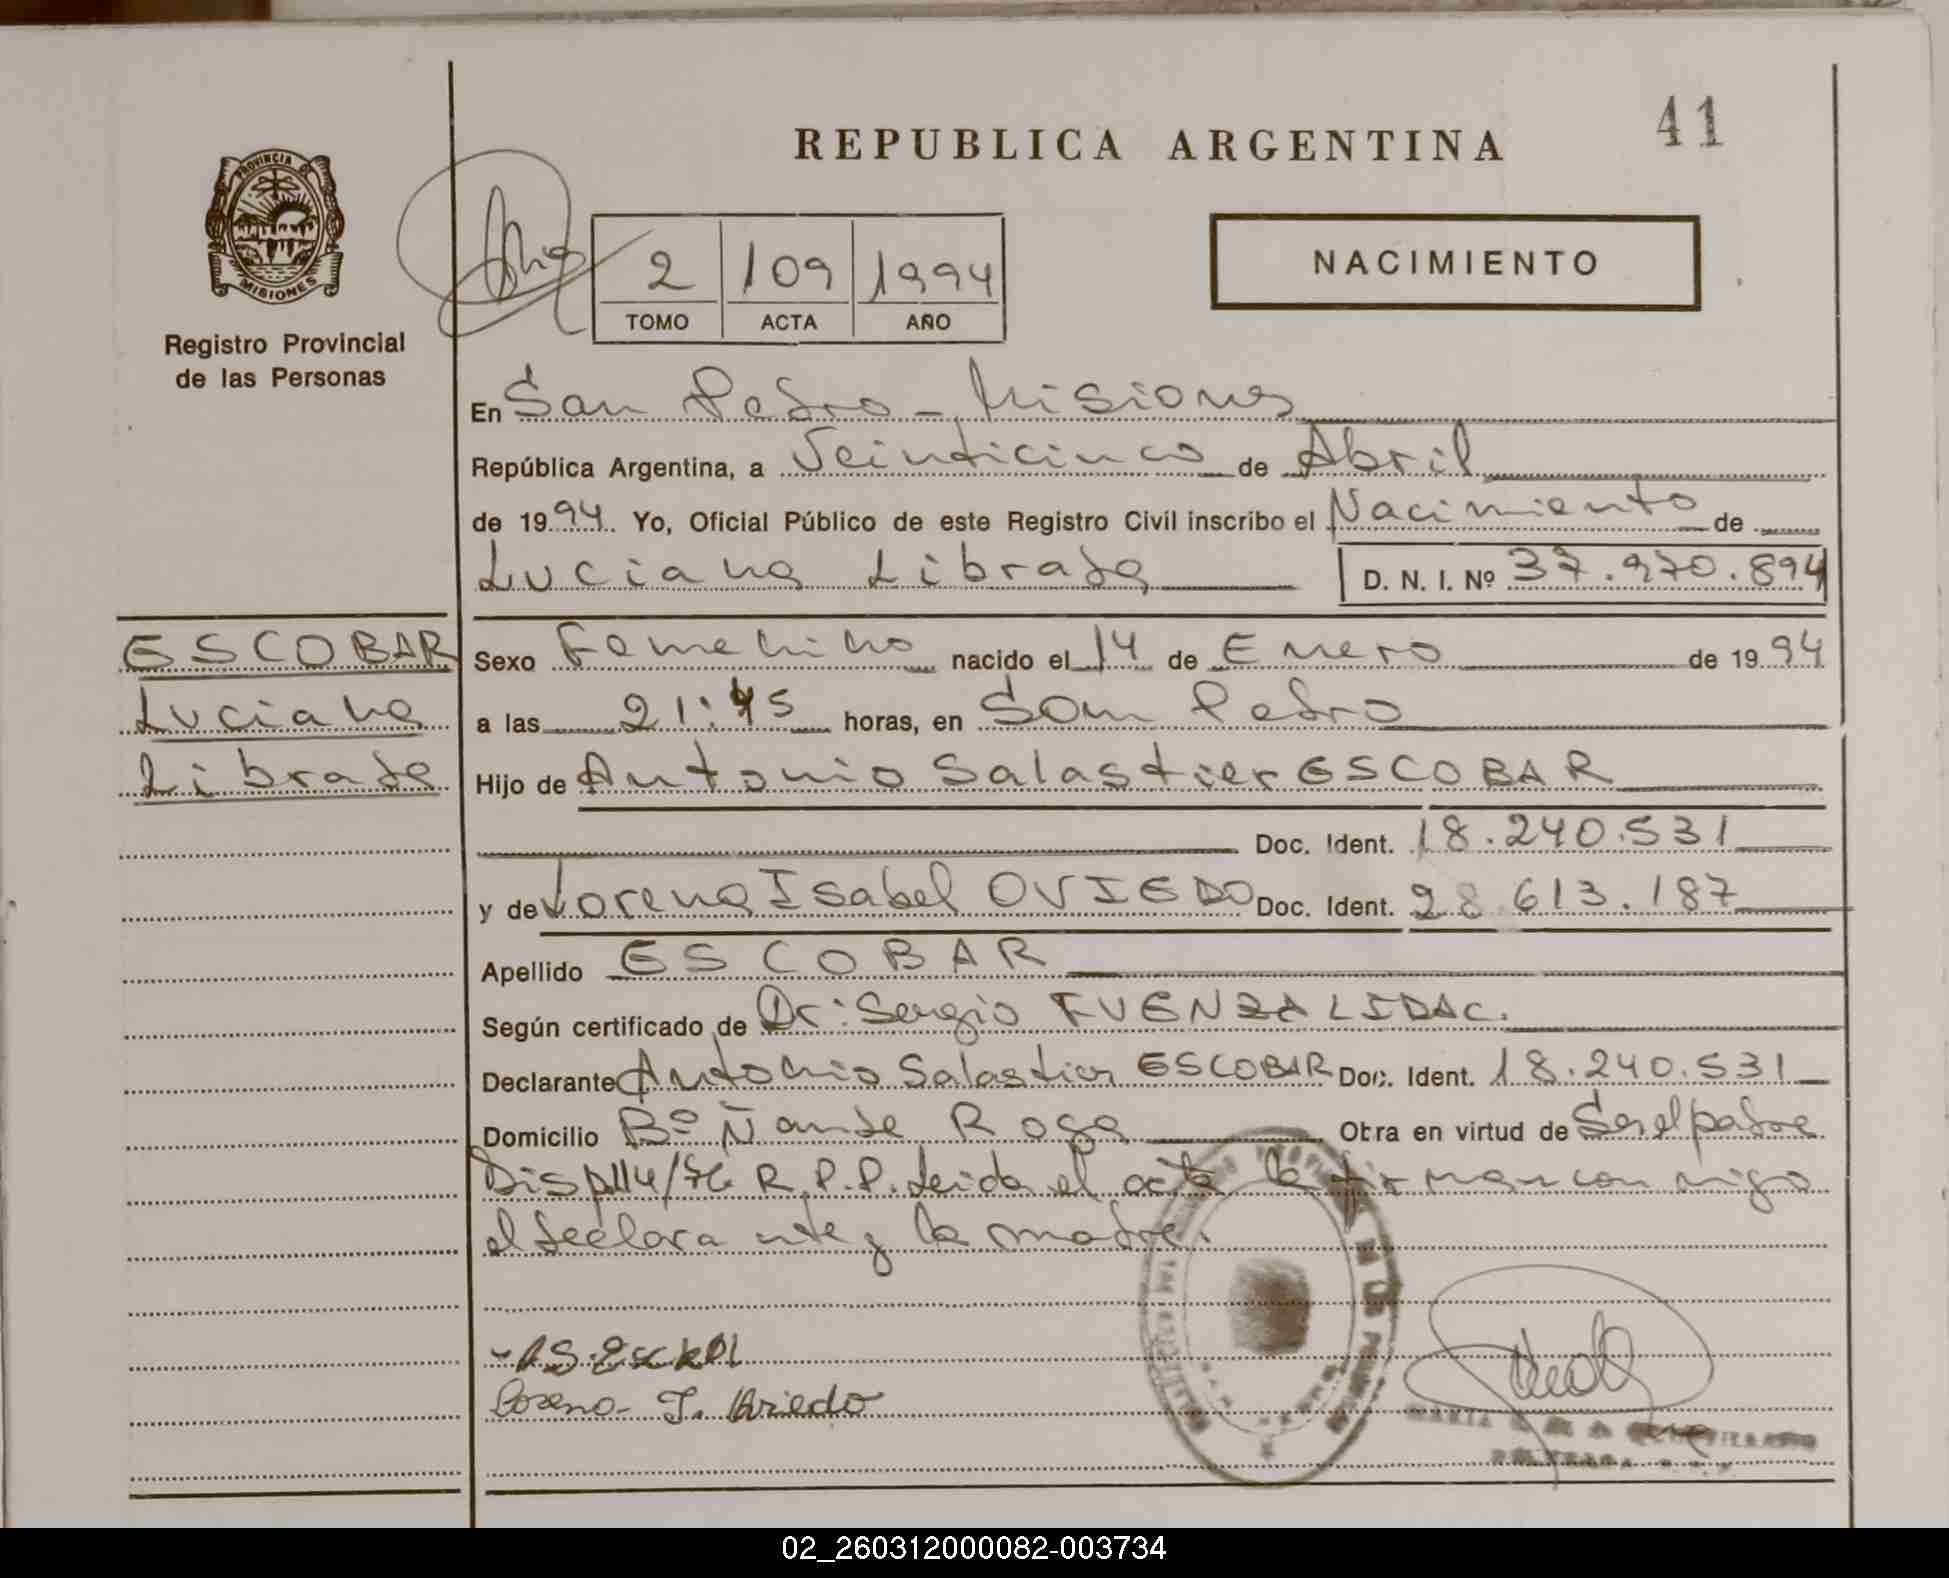 41
REPUBLICA ARGENTINA
PROVINCIA DE
MISIONES
Registro Provincial
de las Personas
2 109 1994
TOMO ACTA AÑO
NACIMIENTO
En San Pedro - Misiones
República Argentina, a Veinticinco de Abril
de 1994. Yo, Oficial Público de este Registro Civil inscribo el Nacimiento de
Luciana Librada D. N. I. Nº 37.970.894
ESCOBAR
Luciana
Librada
Sexo Femenino nacido el 14 de Enero de 1994
a las 21:45 horas, en San Pedro
Hijo de Antonio Salastier ESCOBAR
Doc. Ident. 18.240.531
y de Lorena Isabel OVIEDO Doc. Ident. 28.613.187
Apellido ESCOBAR
Según certificado de Dr: Sergio FUENZALIDA C.
Declarante Antonio Salastier ESCOBAR Doc. Ident. 18.240.531
Domicilio Bº Ñande Roga Obra en virtud de Ser el padre
Disp 114/76 R.P.P. Leida el acta la firman con migo
el declarante y la madre.
A.S. Escobar
Lorena I. Oviedo
MARIA
02_260312000082-003734